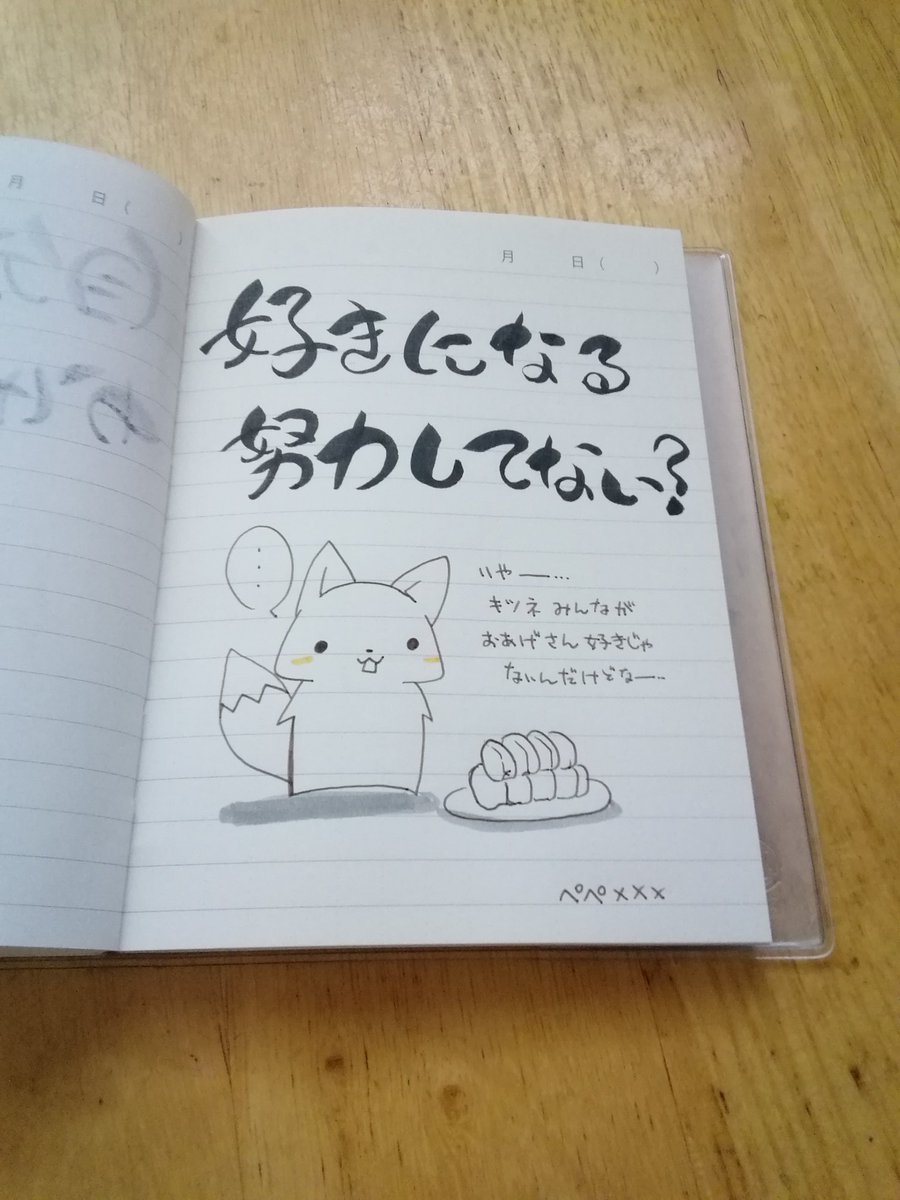 月　日（
月　日（　）
好きになる
努力してない？
…
いやー…
キツネ みんなが
おあげさん 好きじゃ
ないんだけどなー…
ペペ×××